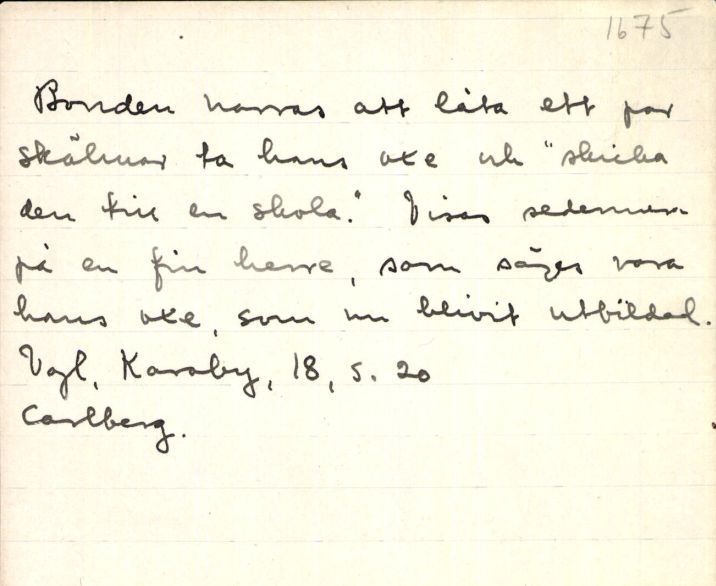 1675
Bonden narras att låta ett par
skälmar ta hans oxe och "skicka
den till en skola." Visas sedermera
på en fin herre, som säges vara
hans oxe, som nu blivit utbildad.
Vgl, Karaby, 18, s. 20
Carlberg.